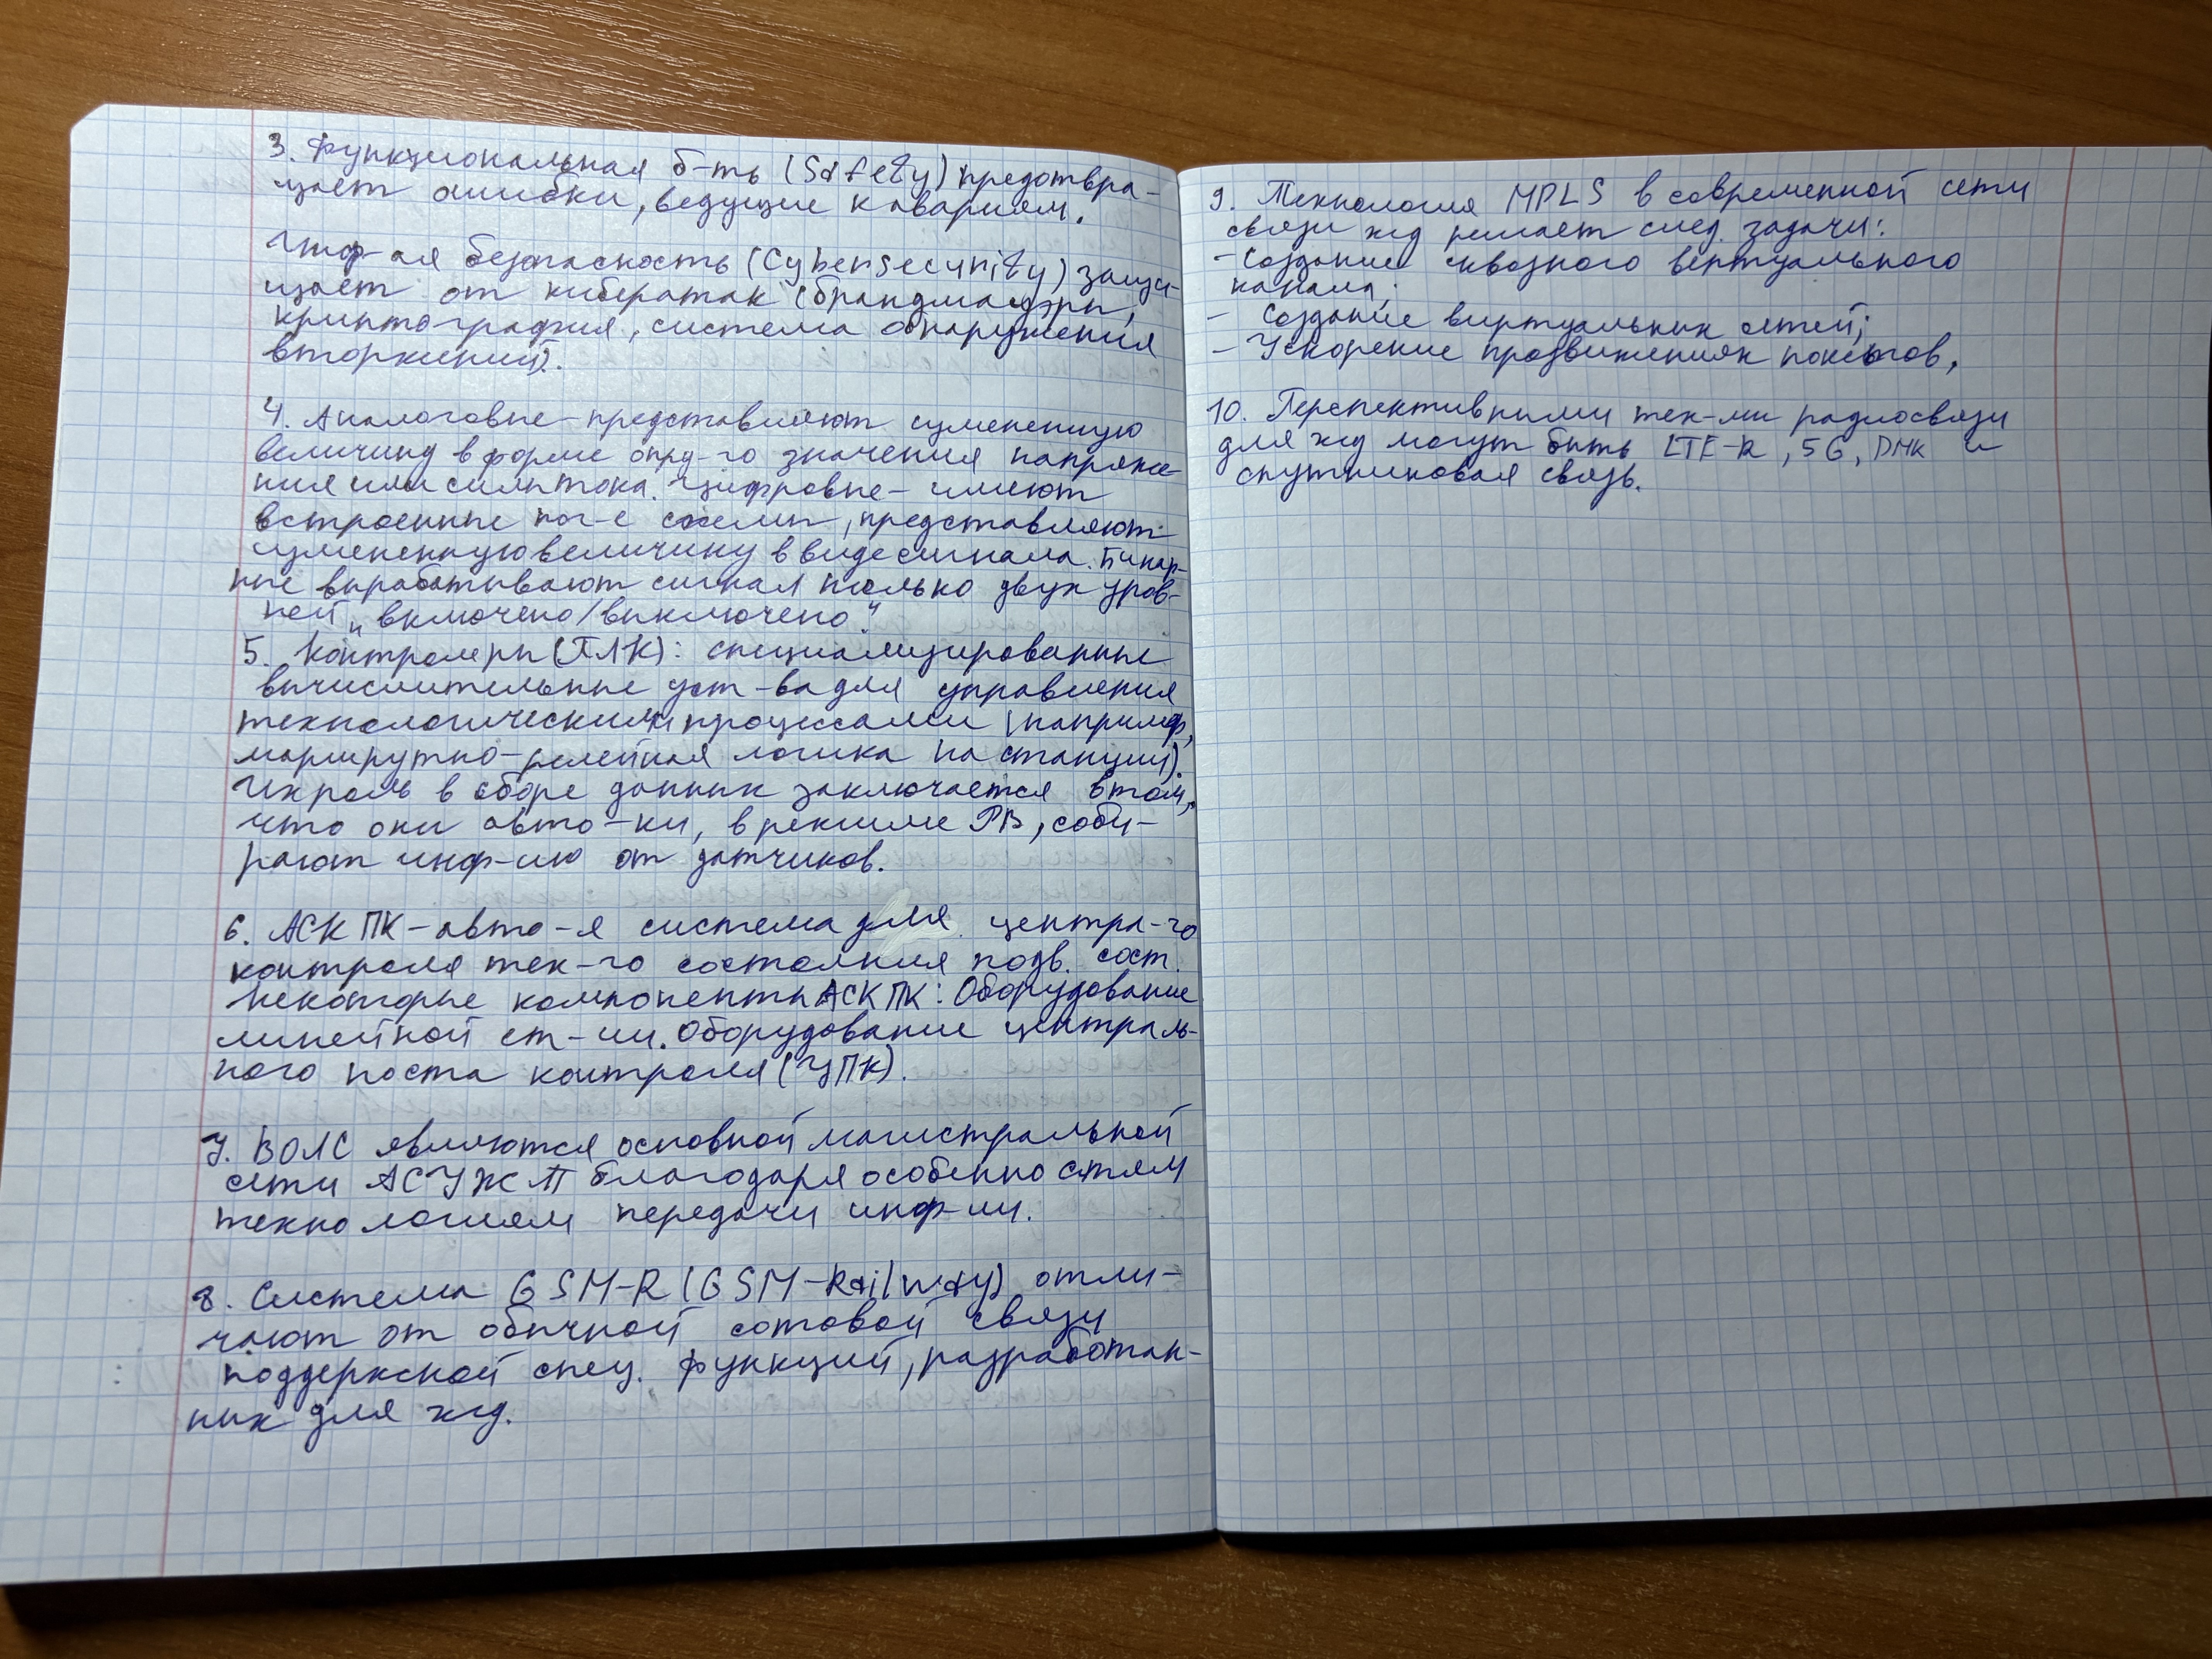 3. Функциональная б-ть (Safety) предотвра-
щает ошибки, ведущие к авариям.
Инф-ая безопасность (Cybersecurity) защи-
щает от кибератак (брандмауэры,
криптография, система обнаружения
вторжений).
4. Аналоговые - представляют измененную
величину в форме опр-го значения напряже
ния или силы тока. Цифровые - имеют
встроенные лог-е схемы, представляют
измененную величину в виде сигнала. Бинар-
ные вырабатывают сигнал только двух уров-
ней „включено/выключено"
5. Контролеры (ПЛК): специализированные
вычислительные уст-ва для управления
технологическими процессами (например,
маршрутно-релейная логика на станции).
Их роль в сборе данных заключается в том,
что они авто-ки, в режиме РВ, соби-
рают инф-ию от датчиков.
6. АСК ПК - авто-я система для центра-го
контроля тех-го состояния подв. сост.
Некоторые компоненты АСК ПК: Оборудование
линейной ст-ии. Оборудование централь-
ного поста контроля (ЦПК).
7. ВОЛС являются основной магистральной
сети АСУЖТ благодаря особенностям
технологиям передачи инф-ии.
8. Система GSM-R (GSM-Railway) отли-
чают от обычной сотовой связи
поддержкой спец. функций, разработан-
ных для жд.
9. Технология MPLS в современной сети
связи жд решает след. задачи:
- Создание сквозного вертуального
канала;
- Создание виртуальных сетей;
- Ускорение продвижениях пакетов.
10. Перспективными тех-ми радиосвязи
для жд могут быть LTE-R, 5G, DMR и
спутниковая связь.